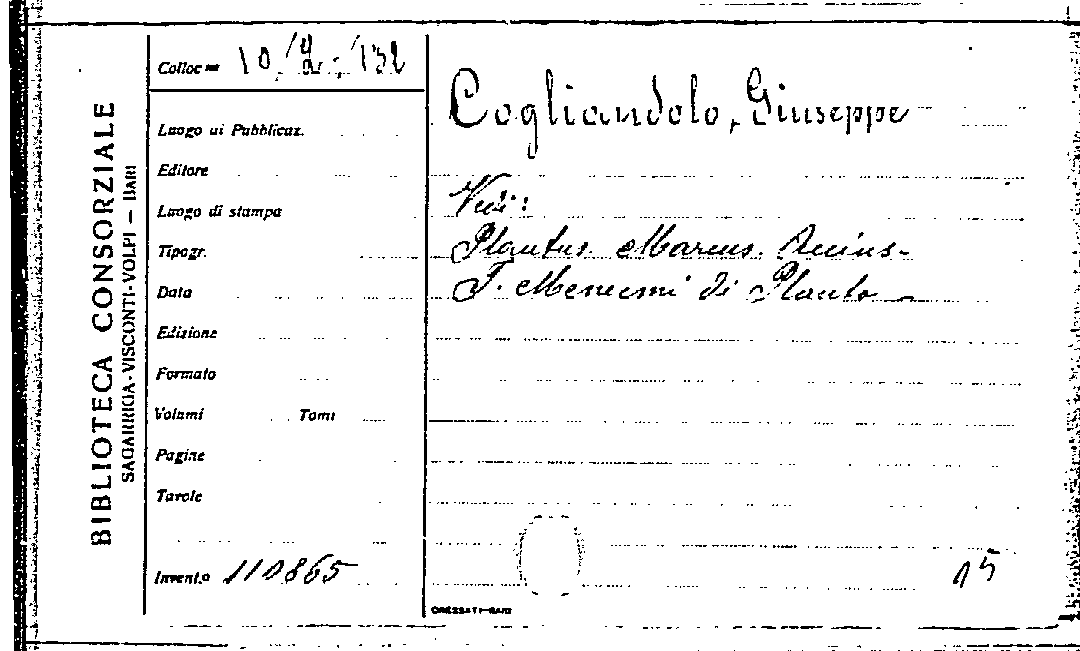 BIBLIOTECA CONSORZIALE
SAGARRIGA-VISCONTI-VOLPI — BARI
Colloc.ne 10
Luogo di Pubblicaz.
Editore
Luogo di stampa
Tipogr.
Data
Edizione
Formato
Volumi Tomi
Pagine
Tavole
Invent.o 110865
Cogliandolo, Giuseppe
Vedi:
Plautus Marcus Accius-
I Menecmi di Plauto
15